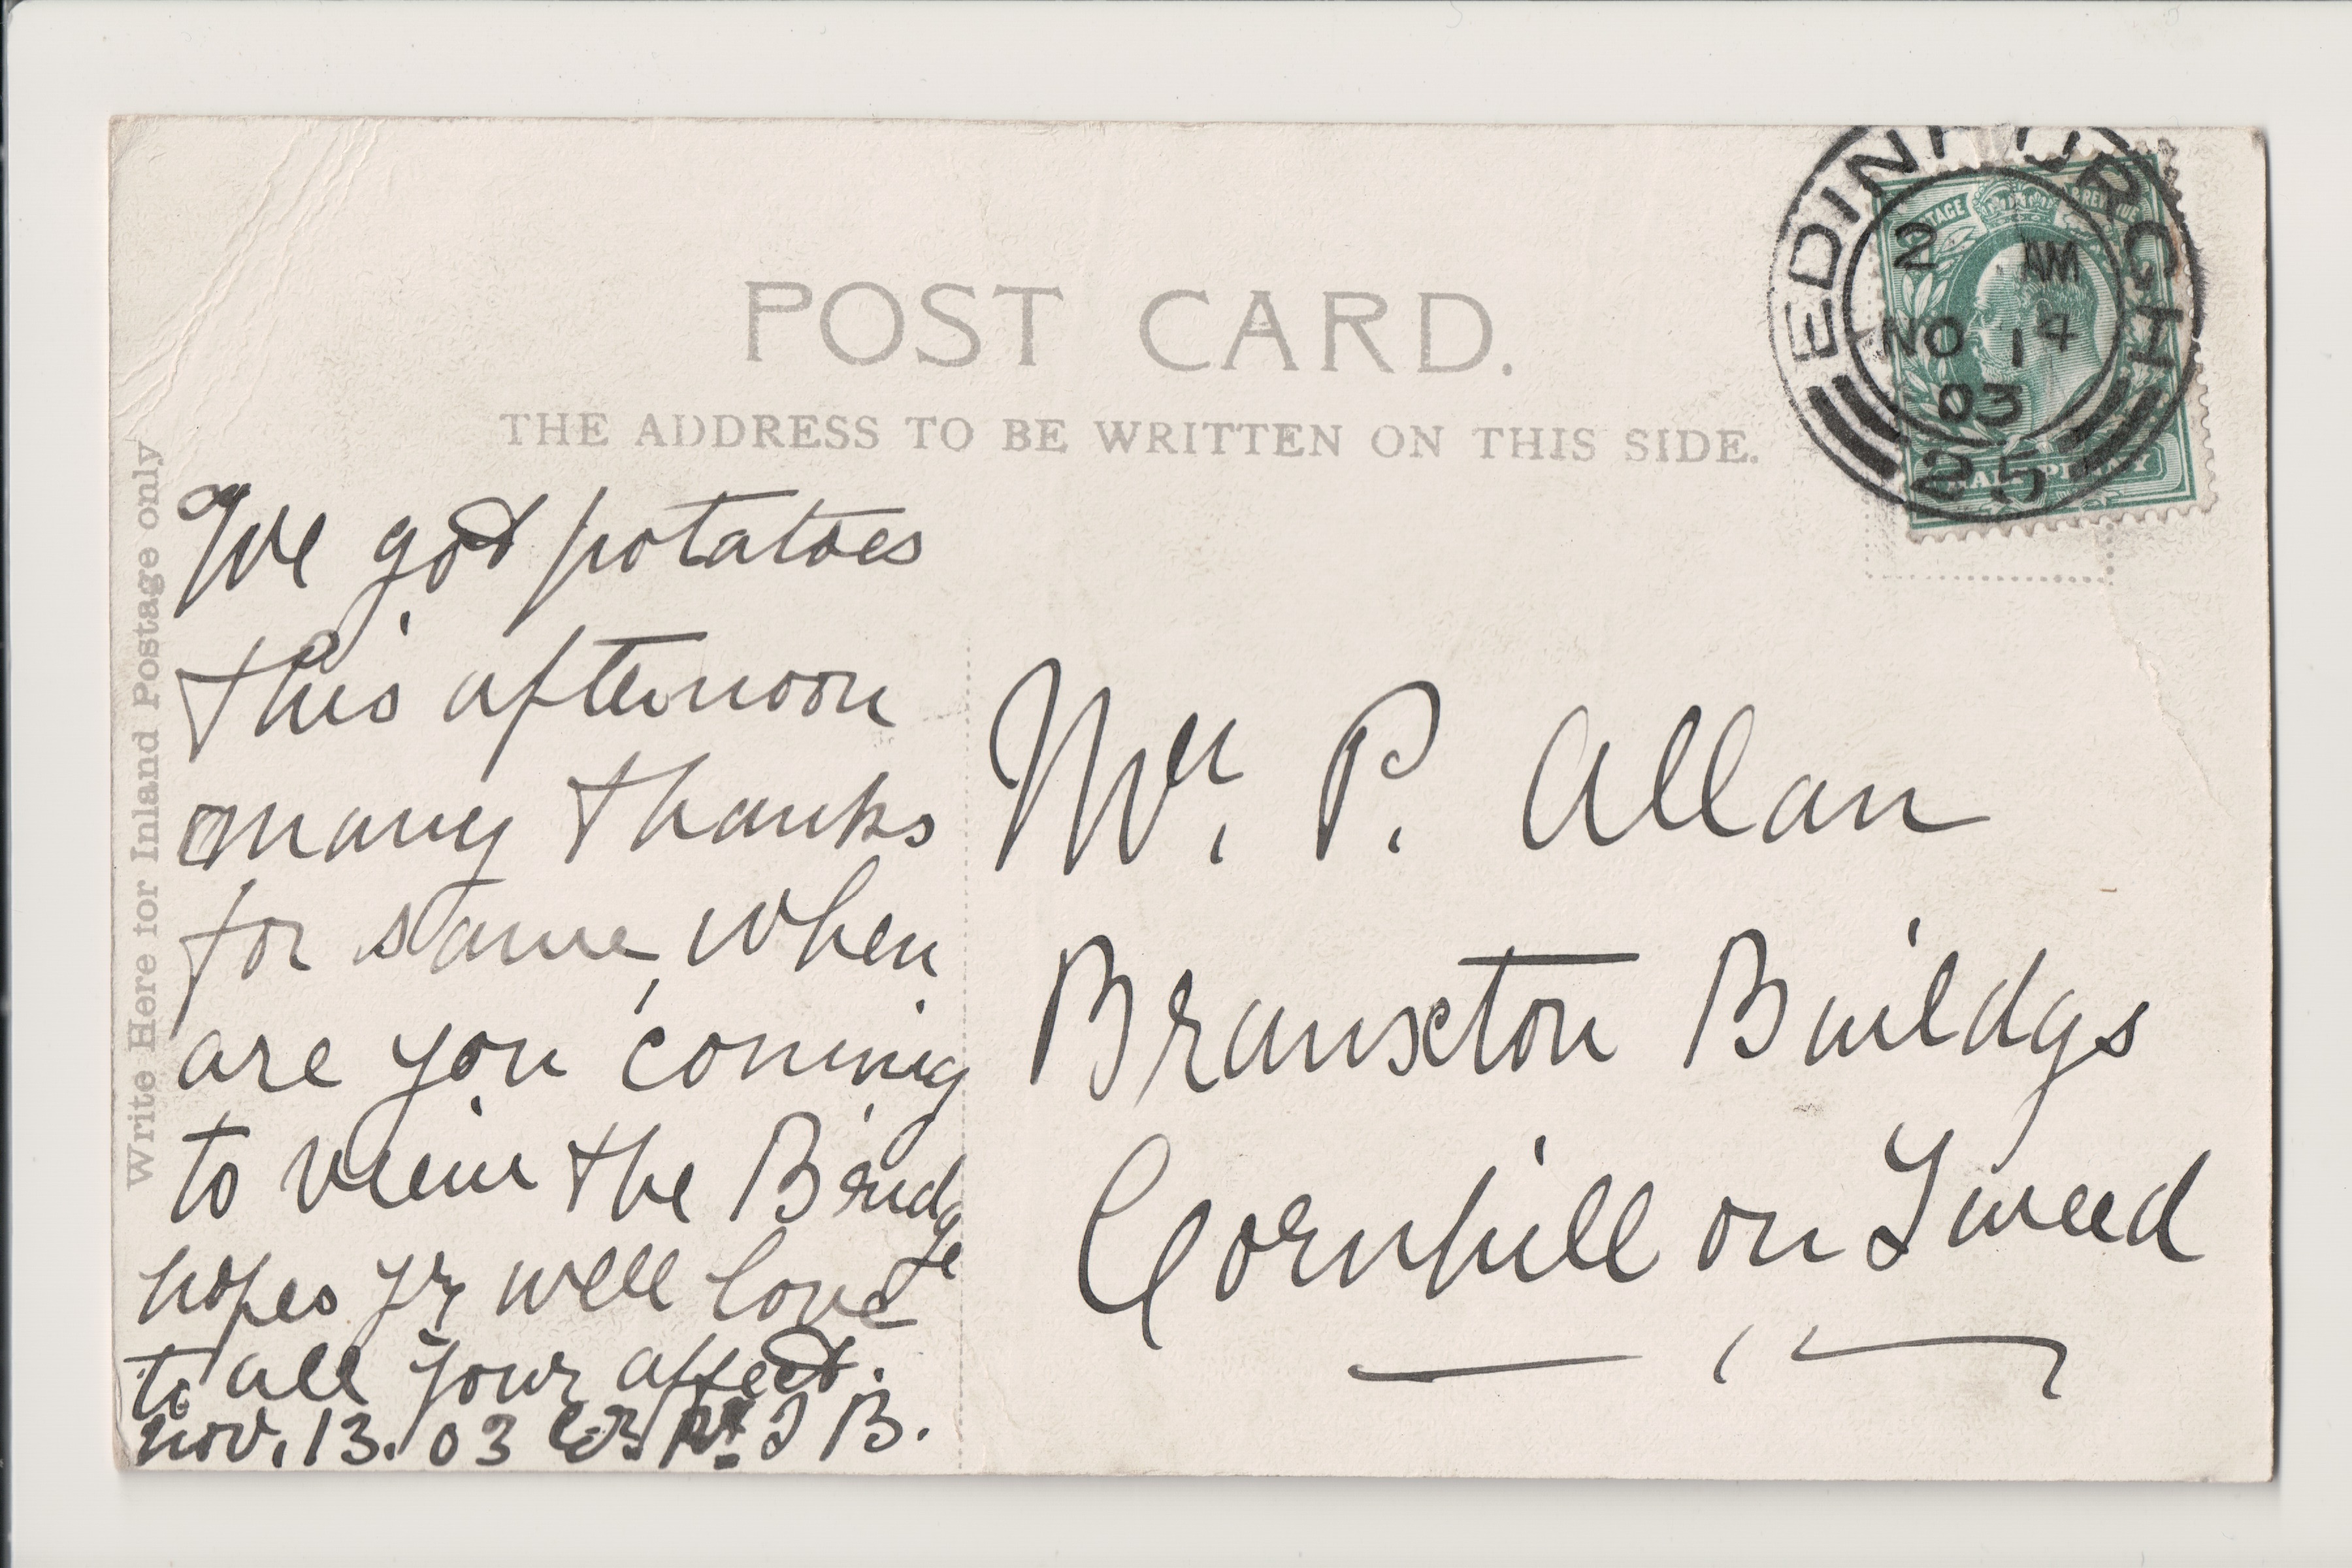 POST CARD.
THE ADDRESS TO BE WRITTEN ON THIS SIDE.
Write Here for Inland Postage only
EDINBURGH
2 AM
NO 14
03
25
POSTAGE REVENUE
HALFPENNY
We got potatoes
this afternoon
many thanks
for same, when
are you coming
to view the Bridge
hopes yr well love
to all your affect.
Nov. 13. 03 B.
Mr. P. Allan
Branxton Buildgs
Cornhill on Tweed